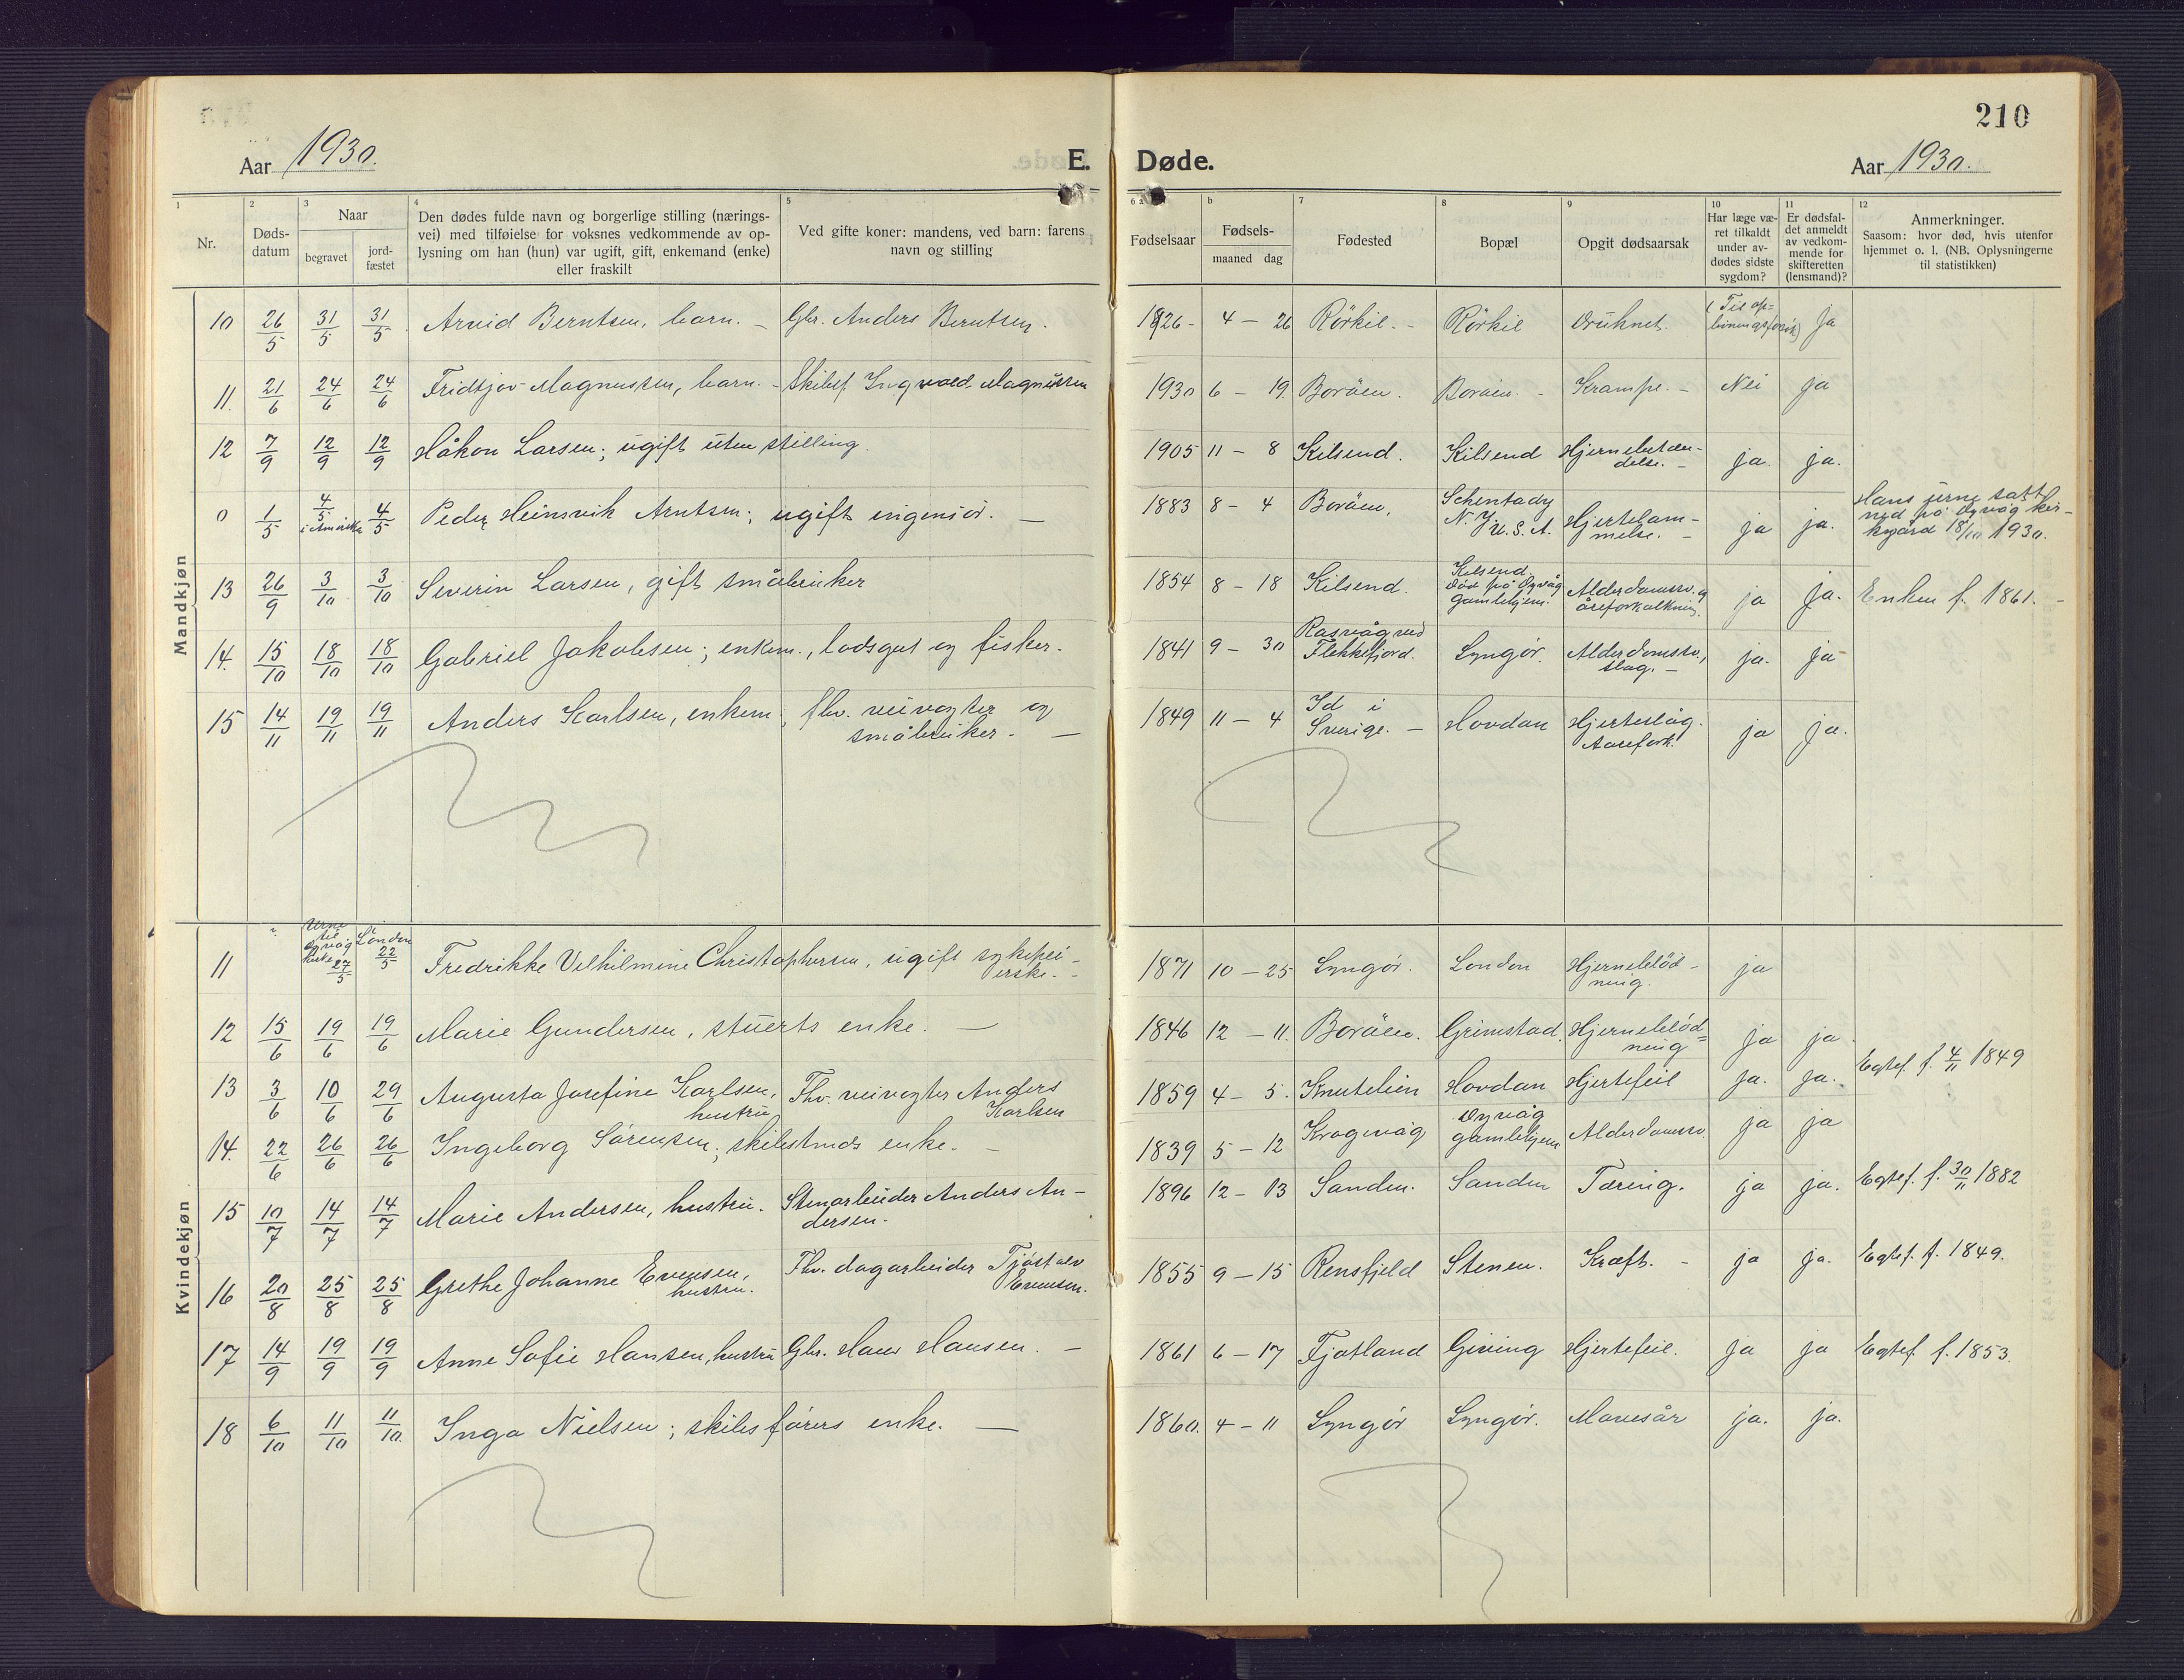 210
Aar 1930.
E. Døde.
Aar 1930.
1 2 3 4 5 6 a b 7 8 9 10 11 12
Nr.
Døds-
datum
Naar
begravet
jord-
fæstet
Den dødes fulde navn og borgerlige stilling (nærings-
vei) med tilføielse for voksnes vedkommende av op-
lysning om han (hun) var ugift, gift, enkemand (enke)
eller fraskilt
Ved gifte koner: mandens, ved barn: farens
navn og stilling
Fødselsaar
Fødsels-
maaned dag
Fødested
Bopæl
Opgit dødsaarsak
Har læge væ-
ret tilkaldt
under av-
dødes sidste
sygdom?
Er dødsfal-
det anmeldt
av vedkom-
mende for
skifteretten
(lensmand)?
Anmerkninger.
Saasom: hvor død, hvis utenfor
hjemmet o. l. (NB. Oplysningerne
til statistikken)
Mandkjøn
10 26/5 31/5 31/5 Arvid Berntsen, barn. – Gbr. Anders Berntsen. 1926 - 4 – 26 Rörkil. - Rörkil Druknet. ja
11. 21/6 24/6 24/6 Fridtjov Magnussen, barn. - Skibsf. Ingvald Magnussen 1930 6 – 19. Boröen. Boröen. - Krampe. - Nei ja
12 7/9 12/9 12/9 Håkon Larsen; ugift uten stilling. 1905 11 – 8 Kilsend. Kilsend Hjernebeten-
delse. – ja. ja.
0 1/5 4/5 i Amerika 4/5 Peder Heinsvik Arntsen; ugift ingeniør. – 1883 8 – 4 Boröen. Schentady
N.Y. U.S.A. Hjertelam-
melse. – ja ja. Hans urne satt
ned på Dyvåg kir-
kegård 18/10 1930.
13 26/9 3/10 3/10 Severin Larsen, gift småbruker 1854 8 – 18 Kilsend. Kilsend.
Død på Dyvåg
gamlehjem. Alderdomssv. og
åreforkalkning. ja ja. Enken f. 1861. –
14. 15/10 18/10 18/10 Gabriel Jakobsen; enkem., lodsgut og fisker. 1841 9 – 30 Rasvåg ved
Flekkefjord. Lyngør. Alderdomssv.,
slag. – ja. ja
15 14/11 19/11 19/11 Anders Karlsen, enkem, fhv. veivogter og
småbruker. – 1849 11 – 4 Id i
Sverige. – Hovdan Hjerteslag.
Aarefork. ja ja.
Kvindekjøn
11 Urne
til
Dyvåg
kirke 27/5 London
22/5 Fredrikke Vilhilmine Christophersen, ugift sykeplei-
erske. - 1871 10 – 25 Lyngør. London Hjerneblød-
ning. ja
12 15/6 19/6 19/6 Marie Gundersen, stuerts enke. – 1846 12 – 11. Boröen. Grimstad. Hjerneblød=
ning ja ja
13 3/6 10/6 29/6 Augusta Josefine Karlsen,
hustru Fhv. veivogter Anders
Karlsen 1859 4 – 5. Knutelien Hovdan Hjertefeil ja. ja. Egtef. f. 4/11 1849
14. 22/6 26/6 26/6 Ingeborg Sörensen; skibstmds enke. – 1839 5 – 12 Krogevåg Dyvåg
gamlehjem Alderdomssv. ja ja
15 10/7 14/7 14/7 Marie Andersen, hustru. Stenarbeider Anders An-
dersen. 1896 12 – 13 Sanden. Sanden Tæring. ja ja. Egtef. f. 30/11 1882
16 20/8 25/8 25/8 Grethe Johanne Evensen,
hustru. Fhv. dagarbeider Tjøstolv
Evensen. 1855 9 – 15 Rensfjeld Stenen. Kræft. - ja ja. Egtef. f. 1849.
17 14/9 19/9 19/9 Anne Sofie Hansen, hustru Gbr. Hans Hansen. – 1861 6 – 17 Fjotland Giving Hjertefeil. ja ja Egtef. f. 1853.
18 6/10 11/10 11/10. Inga Nielsen; skibsførers enke. – 1860. 4 – 11 Lyngör Lyngör. Mavesår ja. ja.